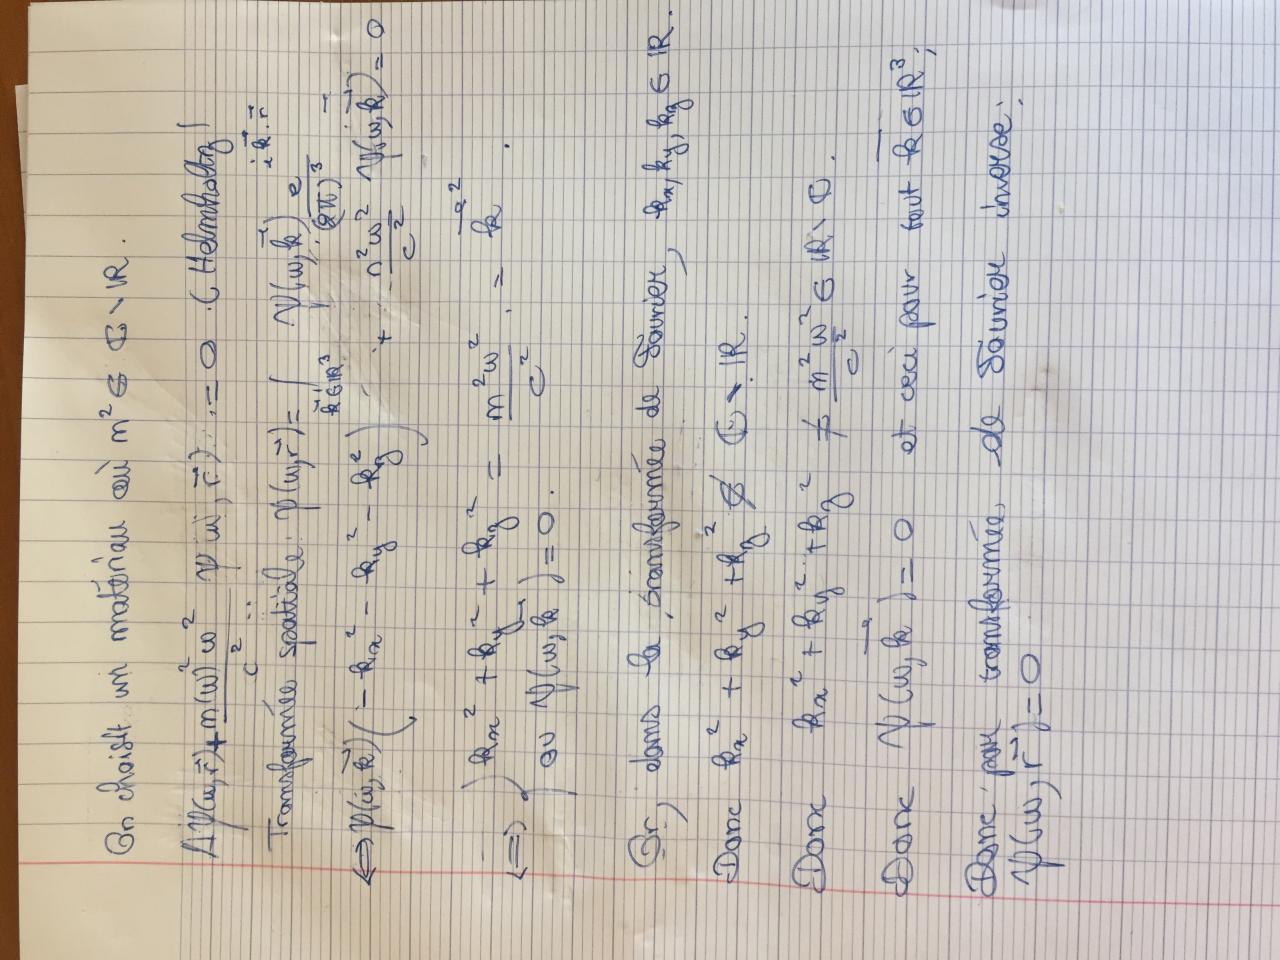 On choisit un matériau où n² ∈ ℂ∖ℝ.
Δψ(ω,r⃗) + n(ω)²ω²/c² ψ(ω,r⃗) = 0 (Helmholtz)
Transformée spatiale: ψ(ω,r⃗) = ∫_{k⃗∈ℝ³} ψ(ω,k⃗) e^{ik⃗.r⃗}/(2π)³
⟺ ψ(ω,k⃗)(-kx² - ky² - kz²) + n²ω²/c² ψ(ω,k⃗) = 0
⟺ kx² + ky² + kz² = n²ω²/c² = k⃗².
ou ψ(ω,k⃗) = 0.
Or, dans la transformée de Fourier, kx, ky, kz ∈ ℝ.
Donc kx² + ky² + kz² ∉ ℂ∖ℝ.
Donc kx² + ky² + kz² ≠ n²ω²/c² ∈ ℝ∖ℂ.
Donc ψ(ω,k⃗) = 0 et ceci pour tout k⃗ ∈ ℝ³,
Donc par transformée de Fourier inverse:
ψ(ω,r⃗) = 0